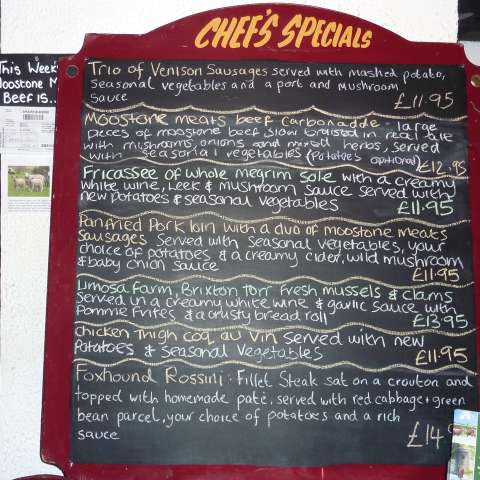 CHEF'S SPECIALS
This Week
Moostone M
Beef is..
Trio of Venison Sausages served with mashed potato,
seasonal vegetables and a port and mushroom
sauce £11.95
Moostone meats beef Carbonadde - large
pieces of moostone beef slow braised in real ale
with mushrooms, onions and mixed herbs, served
with seasonal vegetables (Potatoes optional) £12.95
Fricassee of whole megrim sole with a creamy
white wine, leek & mushroom sauce served with
new potatoes & seasonal vegetables £11.95
Panfried Pork loin with a duo of moostone meats
Sausages Served with seasonal vegetables, your
choice of potatoes & a creamy cider, wild mushroom
& baby onion sauce £11.95
Limosa Farm, Brixton Torr Fresh mussels & clams
Served in a creamy white wine & garlic sauce with
Pomme Frites & a crusty bread roll £13.95
Chicken Thigh Coq au Vin served with new
Potatoes & Seasonal Vegetables £11.95
Foxhound Rossini: Fillet Steak sat on a crouton and
topped with homemade paté, served with red cabbage + green
bean parcel, your choice of potatoes and a rich
sauce £14